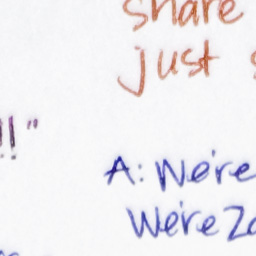 share
just
!!"
A: We're
We're Zo